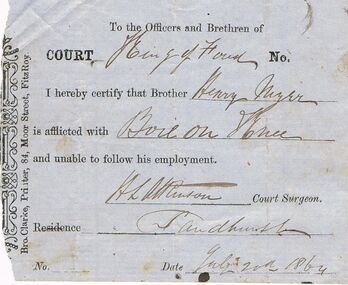 To the Officers and Brethren of
COURT King of Food No.
I hereby certify that Brother Henry
is afflicted with Boil on Knee
and unable to follow his employment.
H L Atkinson Court Surgeon.
Residence Sandhurst
No. Date July 20th 1864
Bro. Clarke, Printer, 84, Moor Street, FitzRoy.